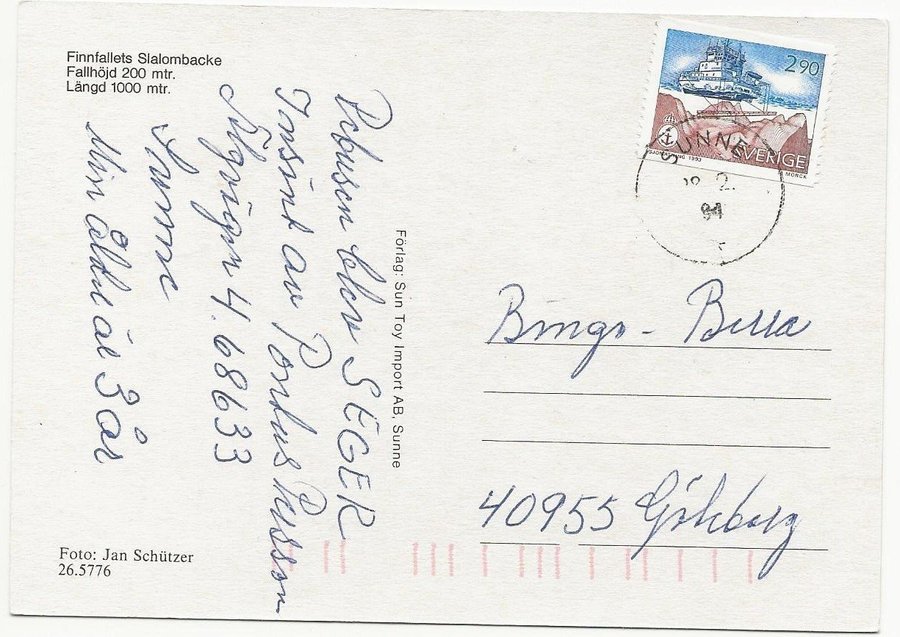 Finnfallets Slalombacke
Fallhöjd 200 mtr.
Längd 1000 mtr.
Rebusen blev SEGER
Insänt av Pontus Persson
Älgvägen 4. 68633
Sunne
Min ålder är 3 år
Förlag: Sun Toy Import AB, Sunne
Foto: Jan Schützer
26.5776
2.90
SVERIGE
1993
MÖRCK
SUNNE
2.
94
Bingo - Berra
40955 Göteborg